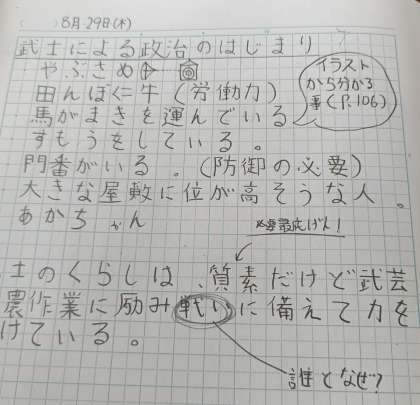 8月29日(木)
武士による政治のはじまり
やぶさめ
田んぼに牛(労働力)
馬がまきを運んでいる
すもうをしている。
門番がいる。(防御の必要)
大きな屋敷に位が高そうな人。
あかちゃん
イラスト
から分かる
事(P.106)
必要最低げん!
士のくらしは、質素だけど武芸
農作業に励み戦いに備えて力を
けている。
誰となぜ?